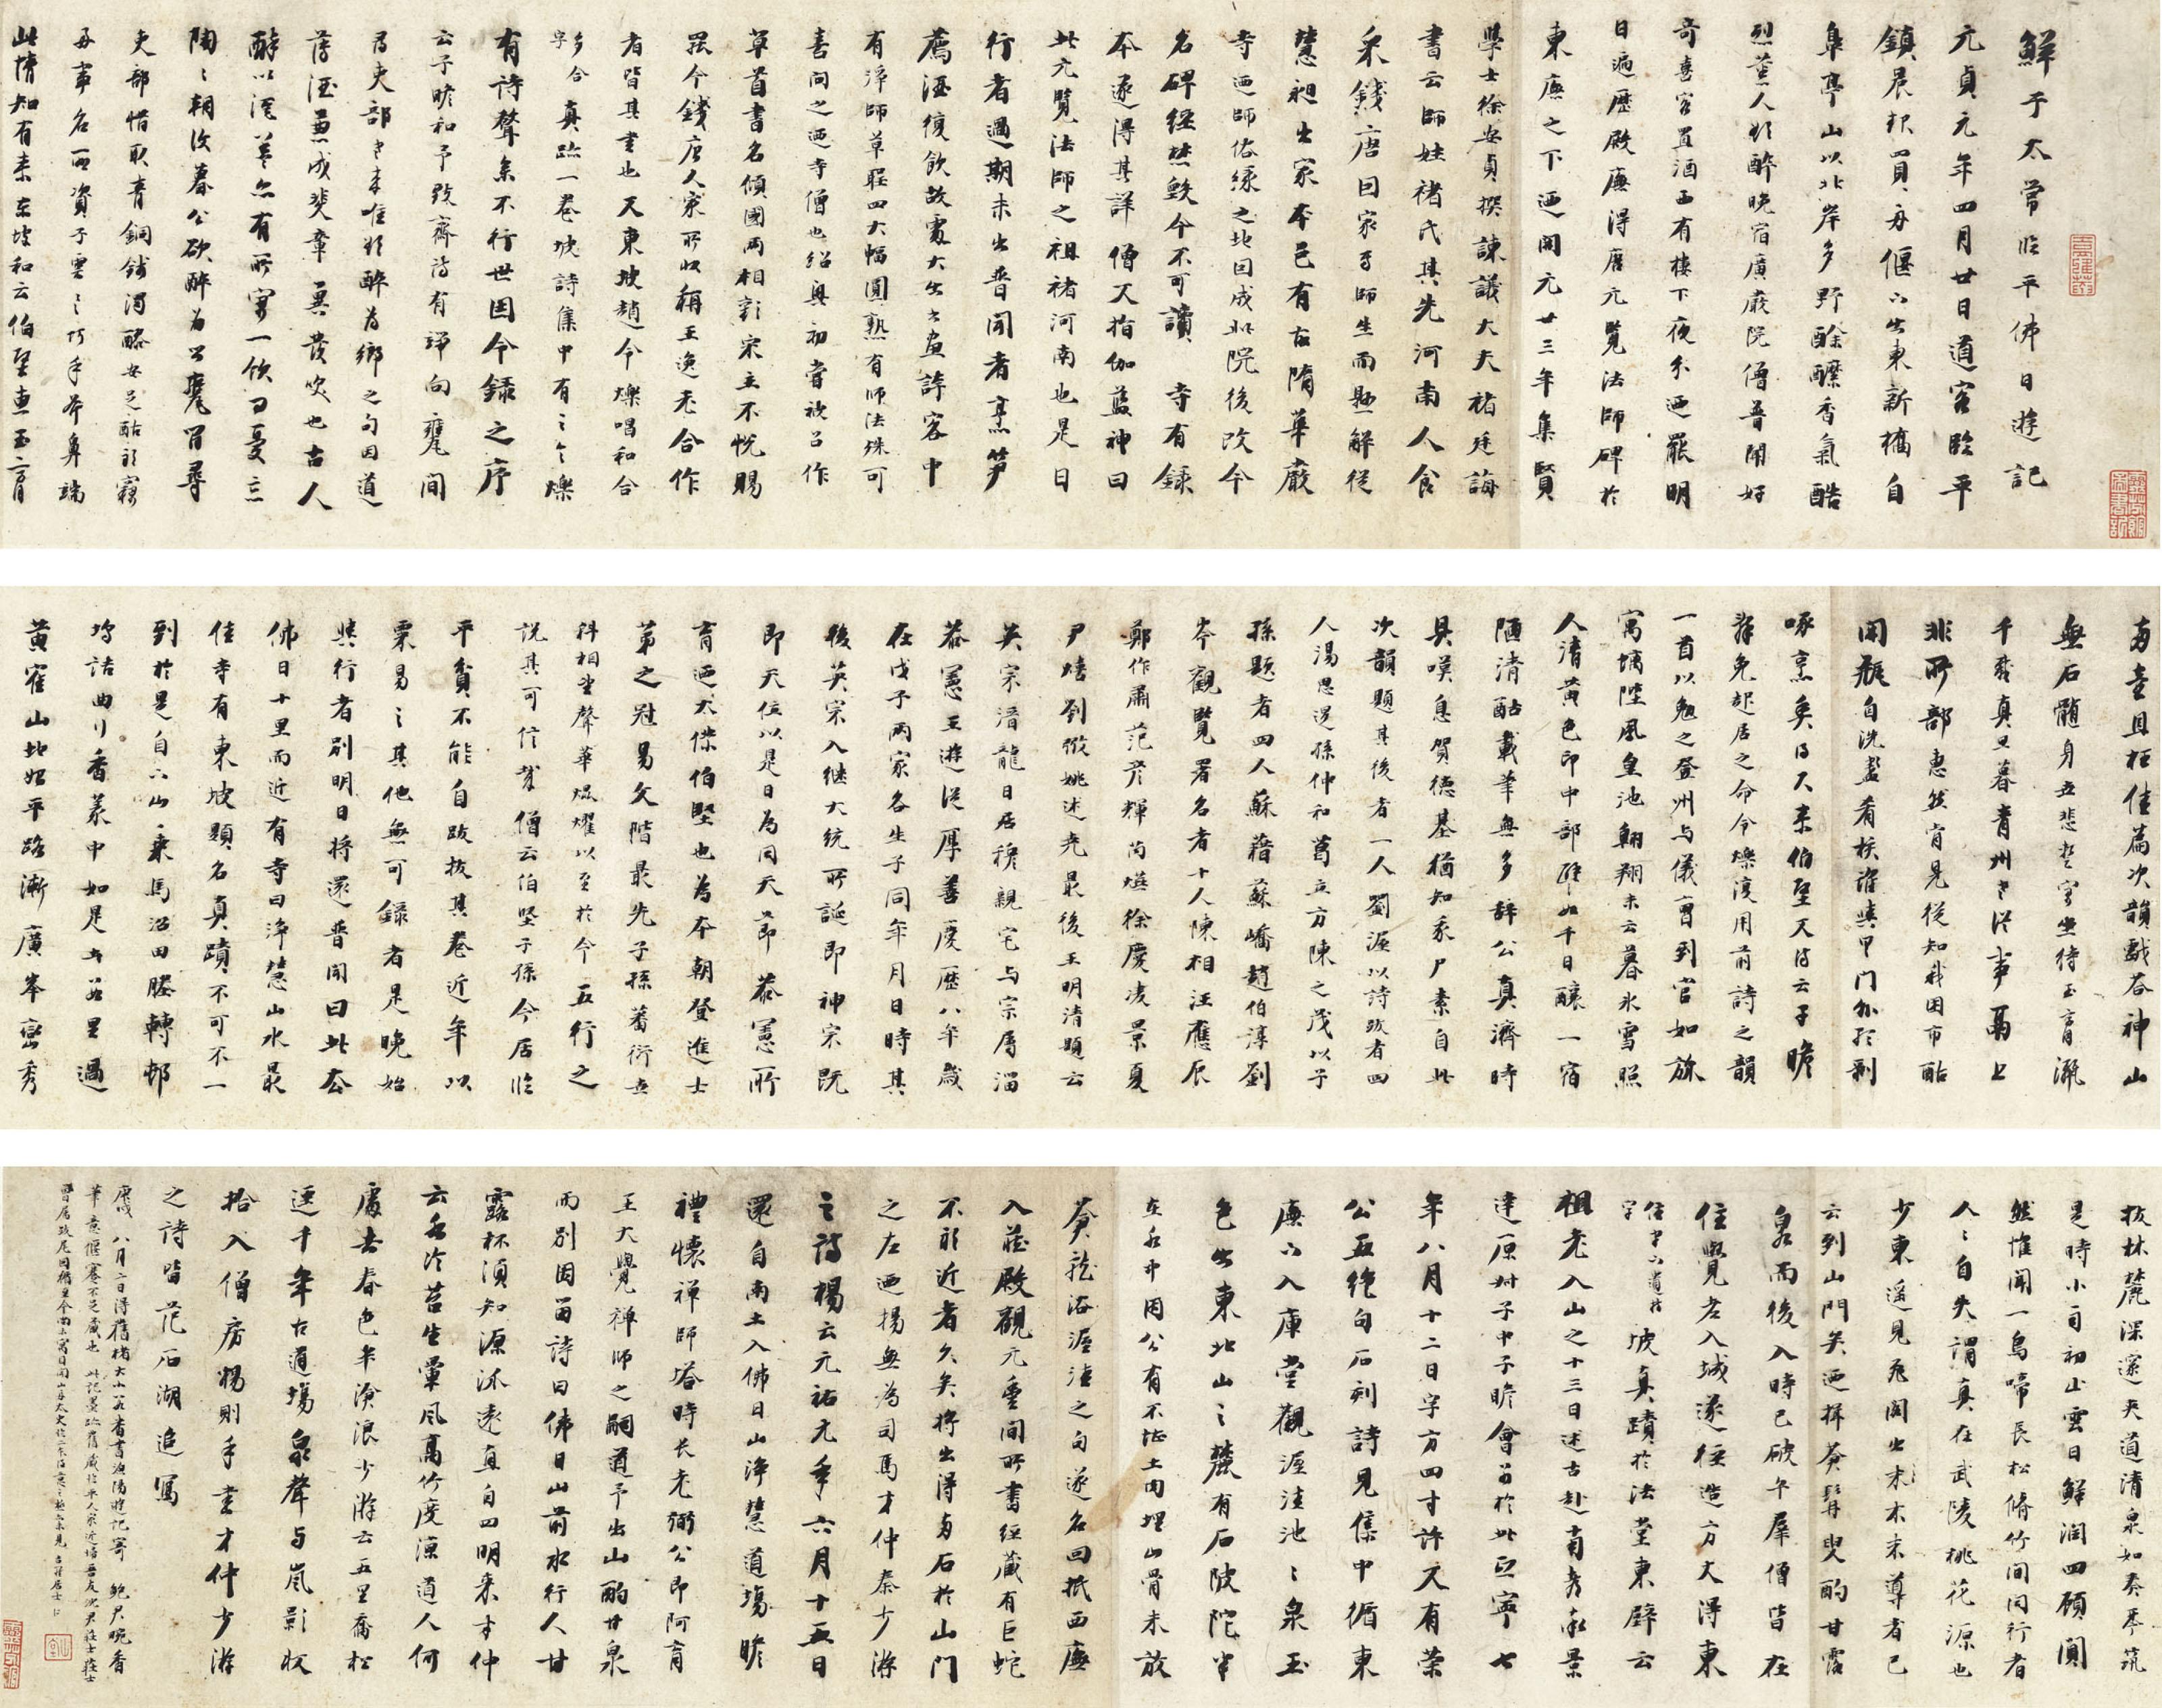 鮮于太常臨平佛日遊記
元貞元年四月廿日道客臨平
鎮晨扣買舟偃仆出東新橋自
皐亭山以北岸多野酴醿香氣酷
烈薰人欲醉晚宿廣嚴院僧普聞好
奇喜客置酒西有樓下夜分迺罷明
日遍歷殿廡得唐元覽法師碑於
東廡之下迺開元廿三年集賢
學士徐安貞撰諫議大夫褚廷誨
書云師姓褚氏其先河南人食
采錢唐因家焉師生而懸解從
慧昶出家本邑有故隋華嚴
寺迺師佑緣之地因成此院後改今
名碑經焚毀今不可讀寺有錄
本遂得其詳僧又指伽藍神曰
此元覽法師之祖褚河南也是日
行者過期未出普聞者烹筍
薦酒復飲故處大出書畫許客中
有淨師草聖四大幅圓熟有師法殊可
喜問之迺寺僧也紹興初嘗被召作
草首書名傾國兩相彰宋主不悅賜
罷今錢唐人家所收稱王逸老合作
者皆其書也又東坡趙令爍唱和合
真跡一卷坡詩集中有之令爍
有詩聲集不行世因今錄之序
云子瞻和予致齋詩有譚向甕間
為吏部之來唯欲醉為鄉之句因道
薄酒兼成斐章異發笑也古人
醉以酒蓋亦有所寓一飲可憂忘
陶陶朝復暮公欲醉為公甕間尋
吏部惜取青銅錢濁醪安足酤
每事名而資子雲之巧手斧鼻端
此情知有素東坡和云伯堅惠玉膏
有壺且枉佳篇次韻戲答神山
無石髓身立悲哉寄坐待玉膏流
千載真旦暮青州老從事鬲上
非所部惠然肯見從知我困市酤
開瓶自洗盞肴核誰與具門外聽剝
啄烹魚得尺素伯堅又詩云子瞻
辭免起居之命令爍復用前詩之韻
一首以勉之登州与儀曹到官如旅
寓墑陛風皇池翱翔未云暮水雪照
人清黃色印中部酔如千日釀一宿
陋清酤載筆無多辭公真濟時
具嘆息賀德基猶知家尸素自此
次韻題其後者一人劉涇以詩跋者四
人湯思退孫仲和葛立方陳之茂以子
孫題者四人蘇藉蘇嶠趙伯淳劉
岑觀覽署名者十人陳相汪應辰
鄭作肅范彥輝芮燁徐慶凌景夏
尹熺劉儆姚述堯最後王明清題云
英宗潛龍日居穆親宅与宗屬溜
恭憲王遊從厚善慶歷八年歲
在戊子兩家各生子同年月日時其
後英宗入继大统所誕即神宗既
即天位以是日為同天節恭憲所
育迺大傑伯堅也為本朝登進士
第之冠易文階最先子孫蕃衍立
科相望聲華焜燿以至於今五行之
說其可信哉僧云伯堅子孫今居臨
平貧不能自跋拔其卷近年以
粟易之其他無可錄者是晚始
與行者別明日將還普聞曰此去
佛日十里而近有寺曰淨慧山水最
佳寺有東坡題名真蹟不可不一
到於是自下山乘馬沿田塍轉邨
塢詰曲行香菉中如是者笞里過
黃霍山地始平路漸廣峯巒秀
拔林麓深邃夾道清泉如奏琴筑
是時小雨初止雲日鮮潤四顧闃
然惟聞一鳥啼長松脩竹間同行者
人人自失謂真在武陵桃花源也
少東遥見飛閣出木末導者已
云到山門矣迺揖蒼髯叟酌甘露
泉而後入時已破午犀僧皆在
住覺者入城遂徑造方丈得東
坡真蹟於法堂東壁云
祖老入山之十三日述古赴南劵承景
達原州子中子瞻會食於此熙寧七
年八月十二日字方四寸許又有榮
公五絶句石刻詩見集中循東
廡下入庫堂觀渥洼池池泉玉
色出東北山之麓有石陂陀半
在水中因公有不堪土肉埋山骨未放
蒼龍浴渥洼之句遂名回抵西廡
入藏殿觀元豐間所書经藏有巨蛇
不形近者久矣將出得斷石於山門
之左迺揚無為司馬才仲秦少游
之詩楊云元祐元年六月十五日
還自南土入佛日山淨慧道場瞻
禮懷禪師塔時長老弼公即阿育
王大覺禅師之嗣道予出山酌甘泉
而別因留詩曰佛日山前水行人甘
露杯湏知源沭遠直自四明来才仲
云無冷苔生暈風高竹度涼道人何
處去春色半滄浪少游云五里喬松
逕千年古道塲泉聲与嵐影收
拾入僧房楊則手書才仲少游
之詩皆范石湖追寫